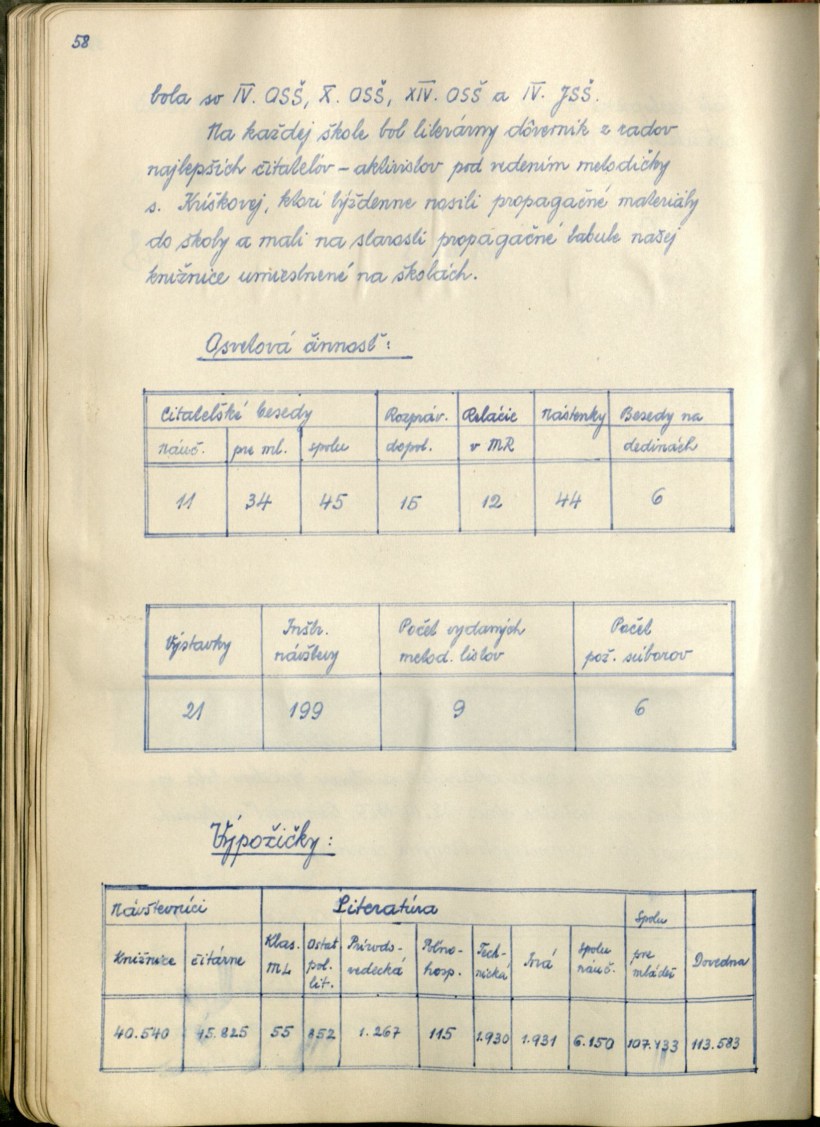 58
bola so IV. OSŠ, X. OSŠ, XIV. OSŠ a IV. JSŠ.
Na každej škole bol literárny dôverník z radov
najlepších čitateľov – aktivistov pod vedením metodičky
s. Kríškovej, ktorí týždenne nosili propagačné materiály
do školy a mali na starosti propagačné tabule našej
knižnice umiestnené na školách.
Osvetová činnosť:
Čitateľské besedy Rozpráv. Relácie Nástenky Besedy na
náuč. pre ml. spolu dopol. v MR dedinách
11 34 45 15 12 44 6
Výstavky Inštr. Počet vydaných Počet
návštevy metod. listov pož. súborov
21 199 9 6
Výpožičky:
Návštevníci Literatúra Spolu
Knižnice čitárne Klas. Ostat. Prírodo- Poľno- Tech- Iná spolu pre Dovedna
ML pol. vedecká hosp. nická náuč. mládež
lit.
40.540 15.825 55 852 1.267 115 1.930 1.931 6.150 107.433 113.583